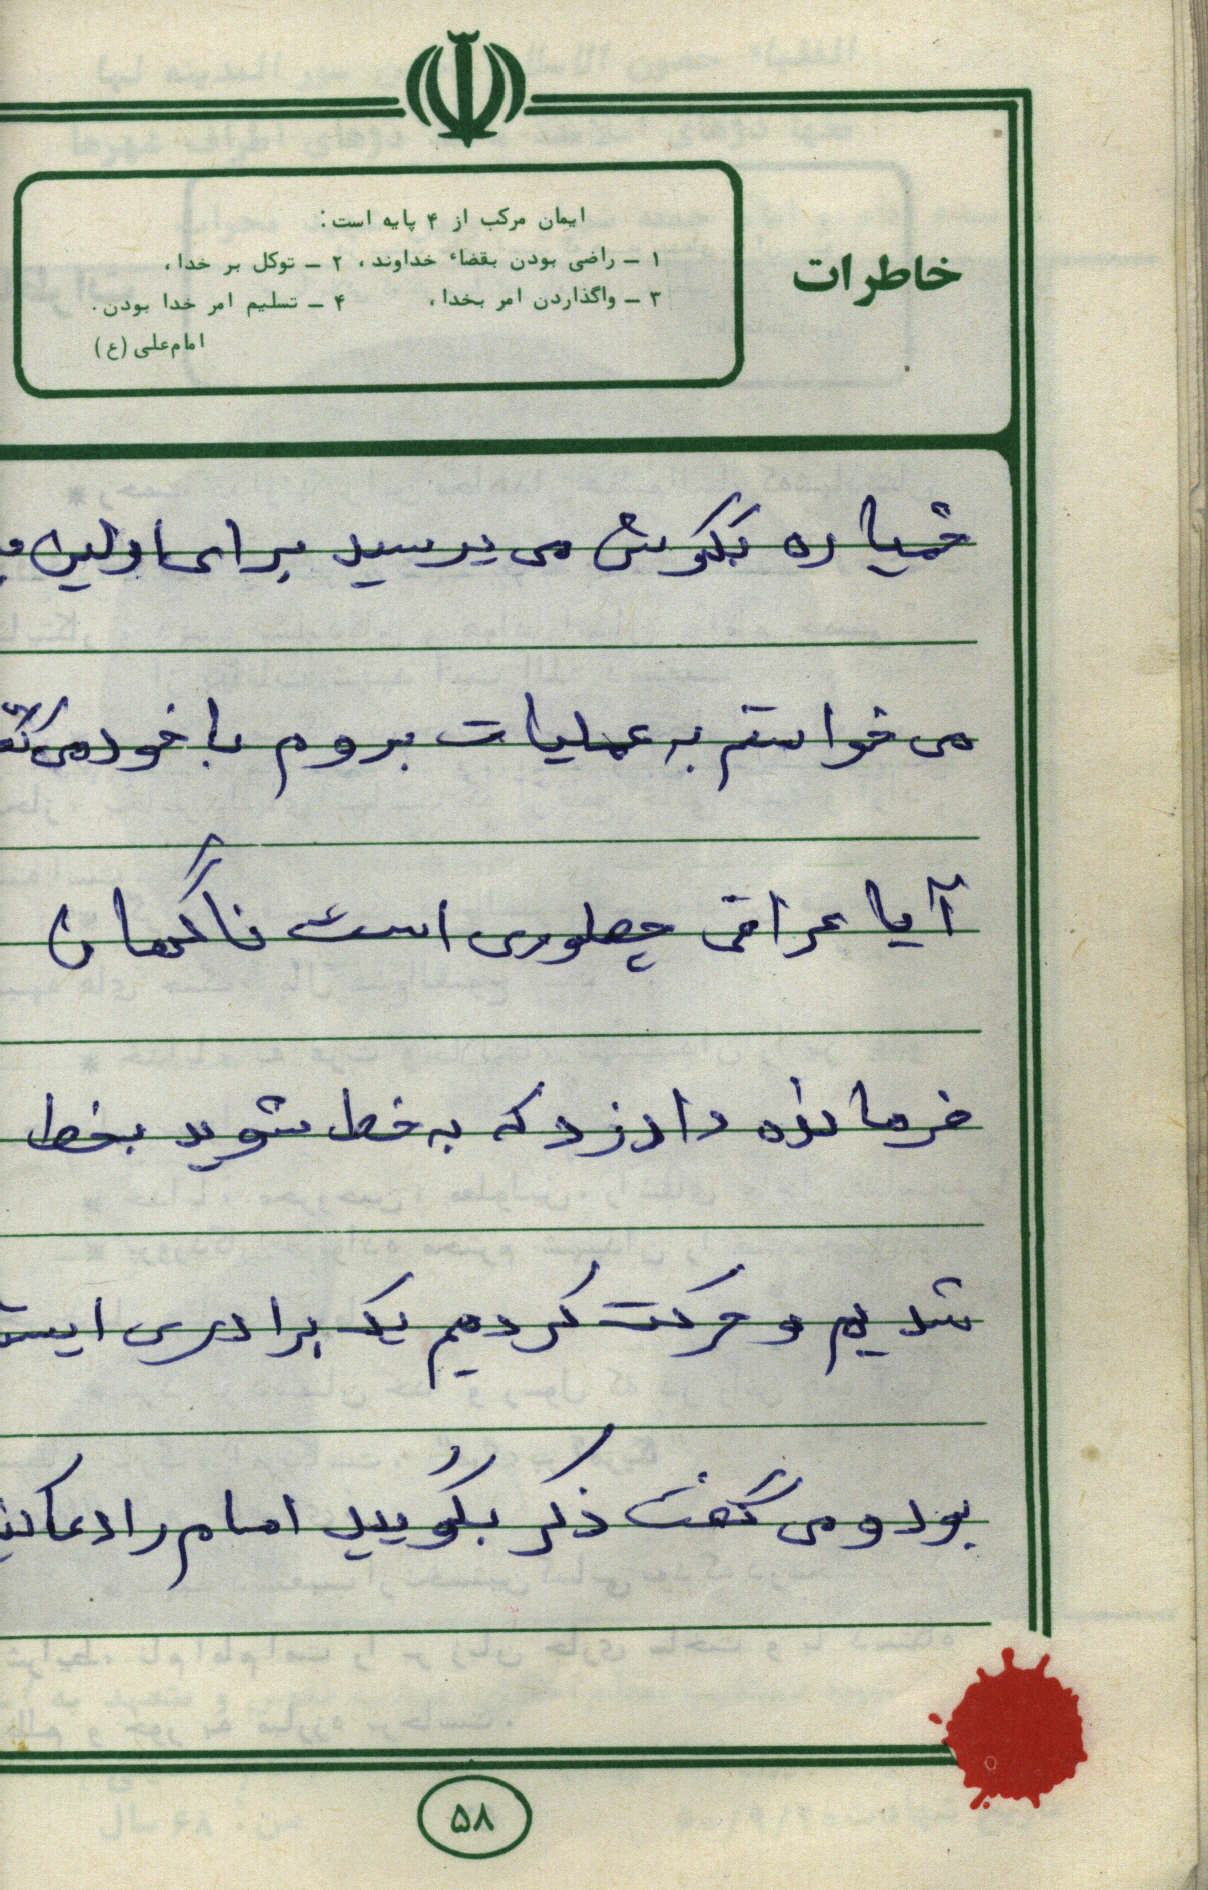 ایمان مرکب از ۴ پایه است:
۱ ـ راضی بودن بقضاء خداوند، ۲ ـ توکل بر خدا،
۳ ـ واگذاردن امر بخدا، ۴ ـ تسلیم امر خدا بودن.
امام‌علی (ع)
خاطرات
خمپاره بگوش می‌رسید برای اولین
می‌خواستم به عملیات بروم با خود
آیا عراقی چطوری است ناگهان
فرمانده داد زد که به خط شوید بخط
شدیم و حرکت کردیم یک برادری
بود و می‌گفت ذکر بگویید امام را دعا
۵۸